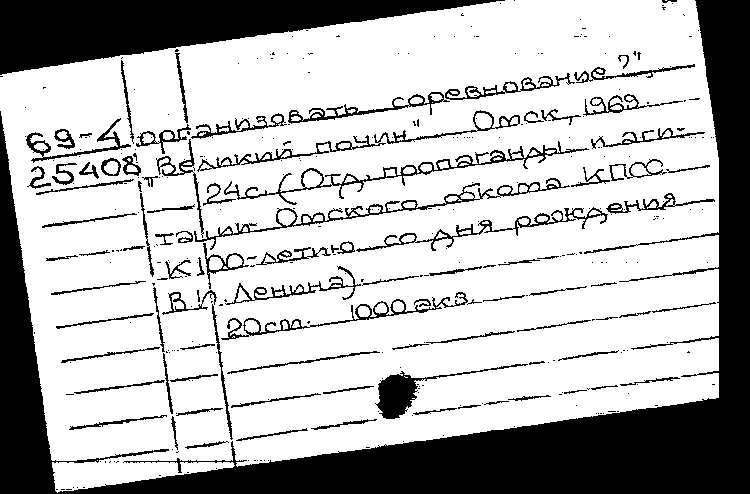 69-4 организовать соревнование?",
25408 "Великий почин" Омск, 1969.
24с. (Отд. пропаганды и аги-
тации Омского обкома КПСС.
К 100-летию со дня рождения
В.И. Ленина).
20см. 1000 экз.